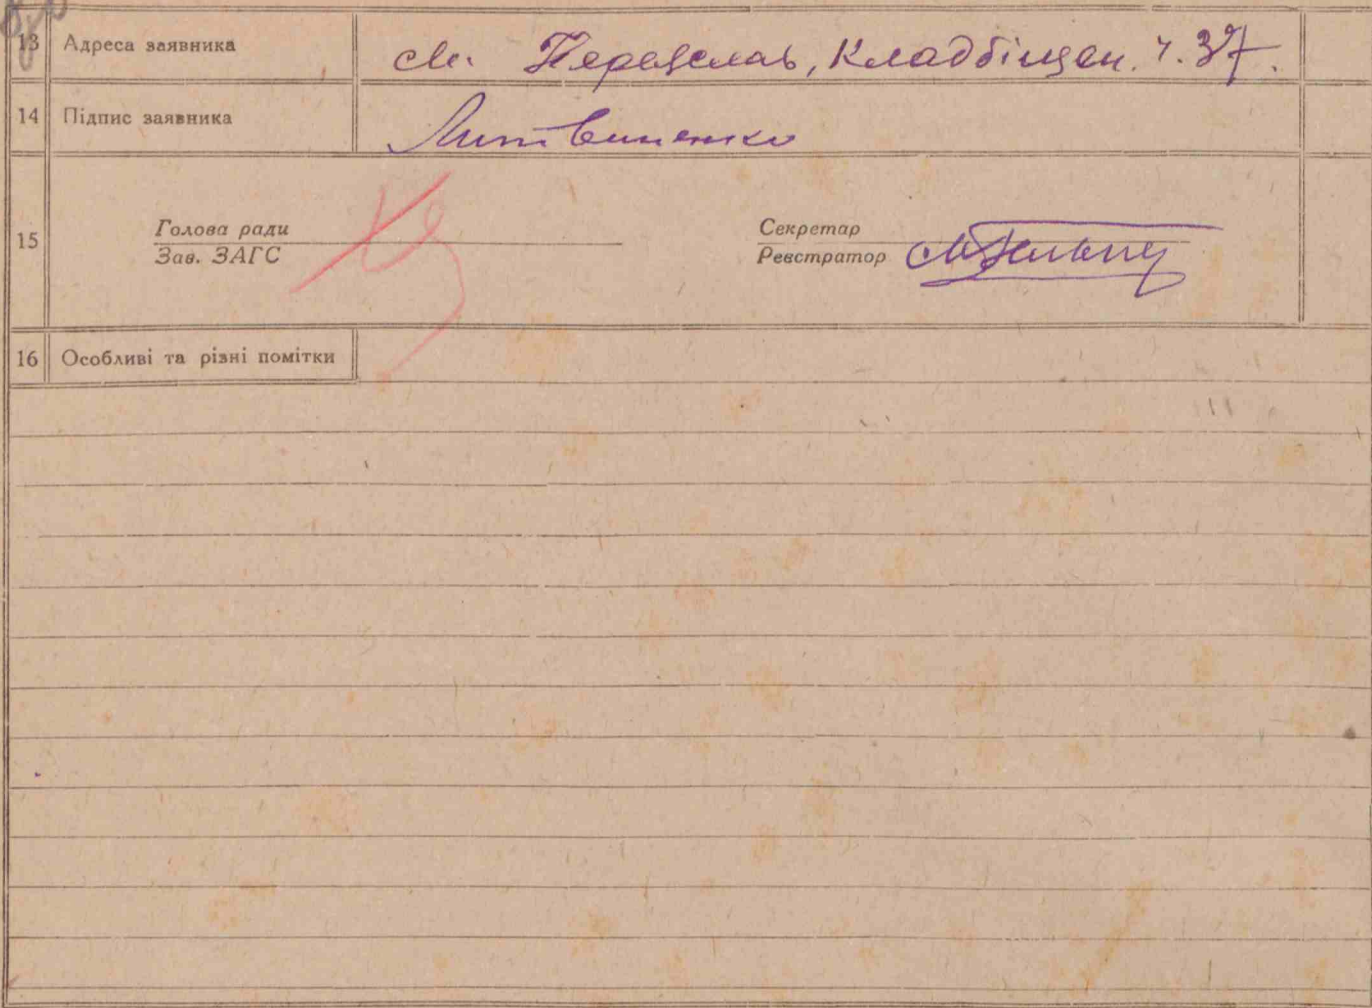 13 Адреса заявника м. Переяслав, Кладбіщен. ч. 37.
14 Підпис заявника Литвиненко
15 Голова ради
Зав. ЗАГС
Секретар
Реєстратор
16 Особливі та різні помітки